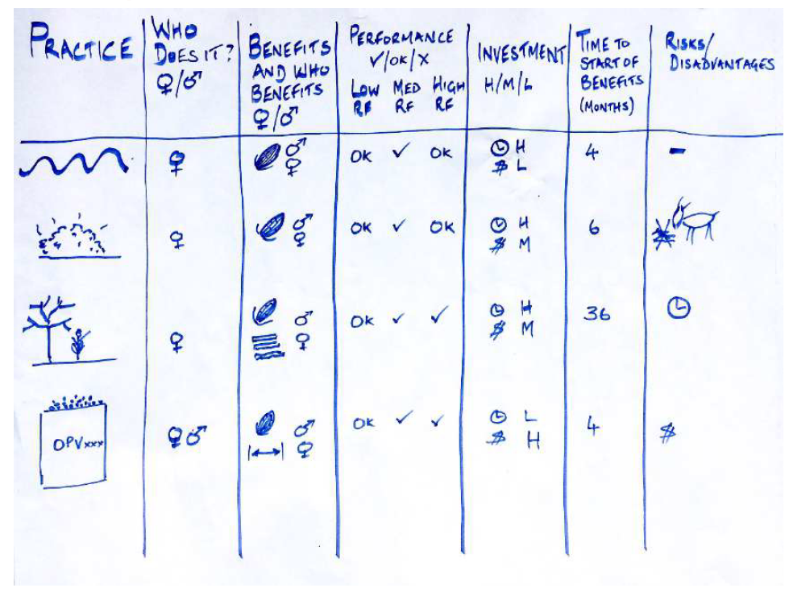 PRACTICE
WHO
DOES IT?
♀/♂
BENEFITS
AND WHO
BENEFITS
♀/♂
PERFORMANCE
✓/OK/X
LOW MED HIGH
RF RF RF
INVESTMENT
H/M/L
TIME TO
START OF
BENEFITS
(MONTHS)
RISKS/
DISADVANTAGES
♀ ♂ OK ✓ OK H 4 -
♀ $ L
♀ ♂ OK ✓ OK H 6
♀ $ M
♂ OK ✓ ✓ H 36
♀ ♀ $ M
OPVxxx ♀♂ ♂ OK ✓ ✓ L 4 $
♀ $ H